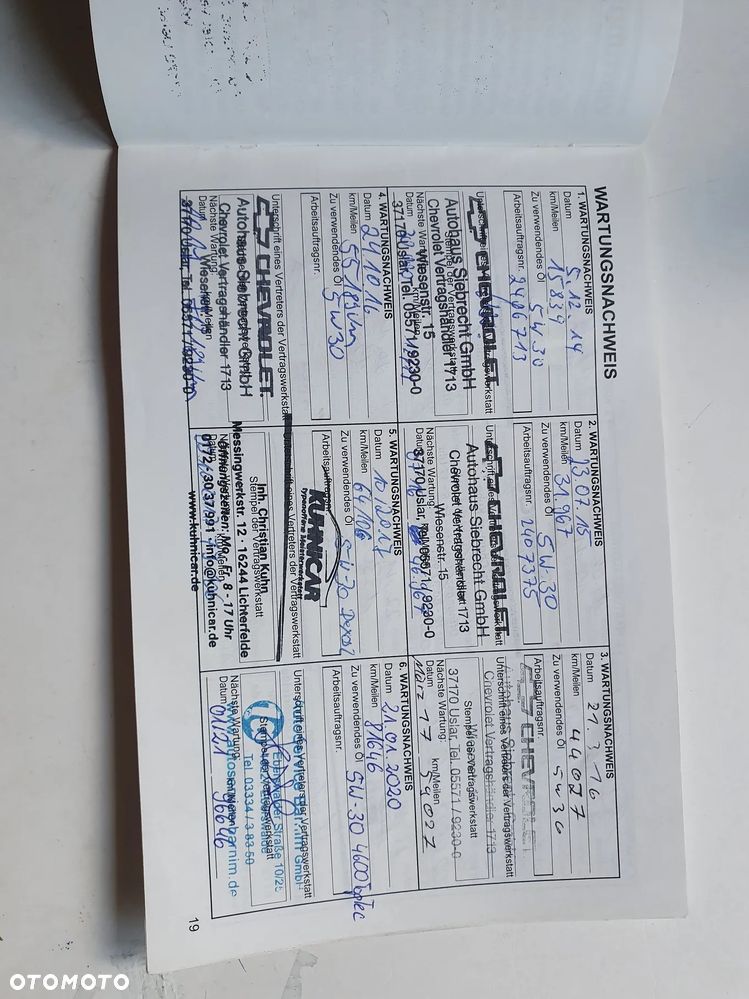 WARTUNGSNACHWEIS
1. WARTUNGSNACHWEIS
Datum 5.12.14
km/Meilen 15839
Zu verwendendes Öl 5W30
Arbeitsauftragsnr. 2406713
CHEVROLET
Autohaus Siebrecht GmbH
Chevrolet Vertragshändler 1713
Wiesenstr. 15
37170 Uslar, Tel. 05571 / 9230-0
2. WARTUNGSNACHWEIS
Datum 13.07.15
km/Meilen 31.967
Zu verwendendes Öl 5W-30
Arbeitsauftragsnr. 2407375
CHEVROLET
Autohaus Siebrecht GmbH
Chevrolet Vertragshändler 1713
Wiesenstr. 15
Nächste Wartung:
37170 Uslar, Tel. 05571 / 9230-0
3. WARTUNGSNACHWEIS
Datum 21.3.16
km/Meilen 44027
Zu verwendendes Öl 5W30
Arbeitsauftragsnr.
CHEVROLET
Unterschrift eines Vertreters der Vertragswerkstatt
Chevrolet Vertragshändler 1713
Stempel der Vertragswerkstatt
37170 Uslar, Tel. 05571 / 9230-0
Nächste Wartung: km/Meilen
Datum März 17 59027
4. WARTUNGSNACHWEIS
Datum 24.10.16
km/Meilen 55189 km
Zu verwendendes Öl 5W30
Arbeitsauftragsnr.
Unterschrift eines Vertreters der Vertragswerkstatt
CHEVROLET
Autohaus Siebrecht GmbH
Chevrolet Vertragshändler 1713
Nächste Wartung:
Wiesenstr. 15
37170 Uslar, Tel. 05571 / 9230-0
5. WARTUNGSNACHWEIS
Datum 10/2017
km/Meilen 64106
Zu verwendendes Öl 5W-30 Dexos2
Arbeitsauftragsnr.
KUHNICAR
typenoffene Meisterwerkstatt
Unterschrift eines Vertreters der Vertragswerkstatt
Inh. Christian Kuhn
Stempel der Vertragswerkstatt
Messingwerkstr. 12 · 16244 Lichterfelde
Öffnungszeiten: Mo. - Fr. 8 - 17 Uhr
0172 / 30 37 991 · info@kuhnicar.de
www.kuhnicar.de
6. WARTUNGSNACHWEIS
Datum 21.01.2020
km/Meilen 81646
Zu verwendendes Öl 5W-30 4600 TopTec
Arbeitsauftragsnr.
Unterschrift eines Vertreters der Vertragswerkstatt
Eberswalder Straße 10/25
Stempel der Vertragswerkstatt
Tel. 03334 / 3 83 50
Nächste Wartung: km/Meilen
Datum 01/21 96646
19
OTOMOTO